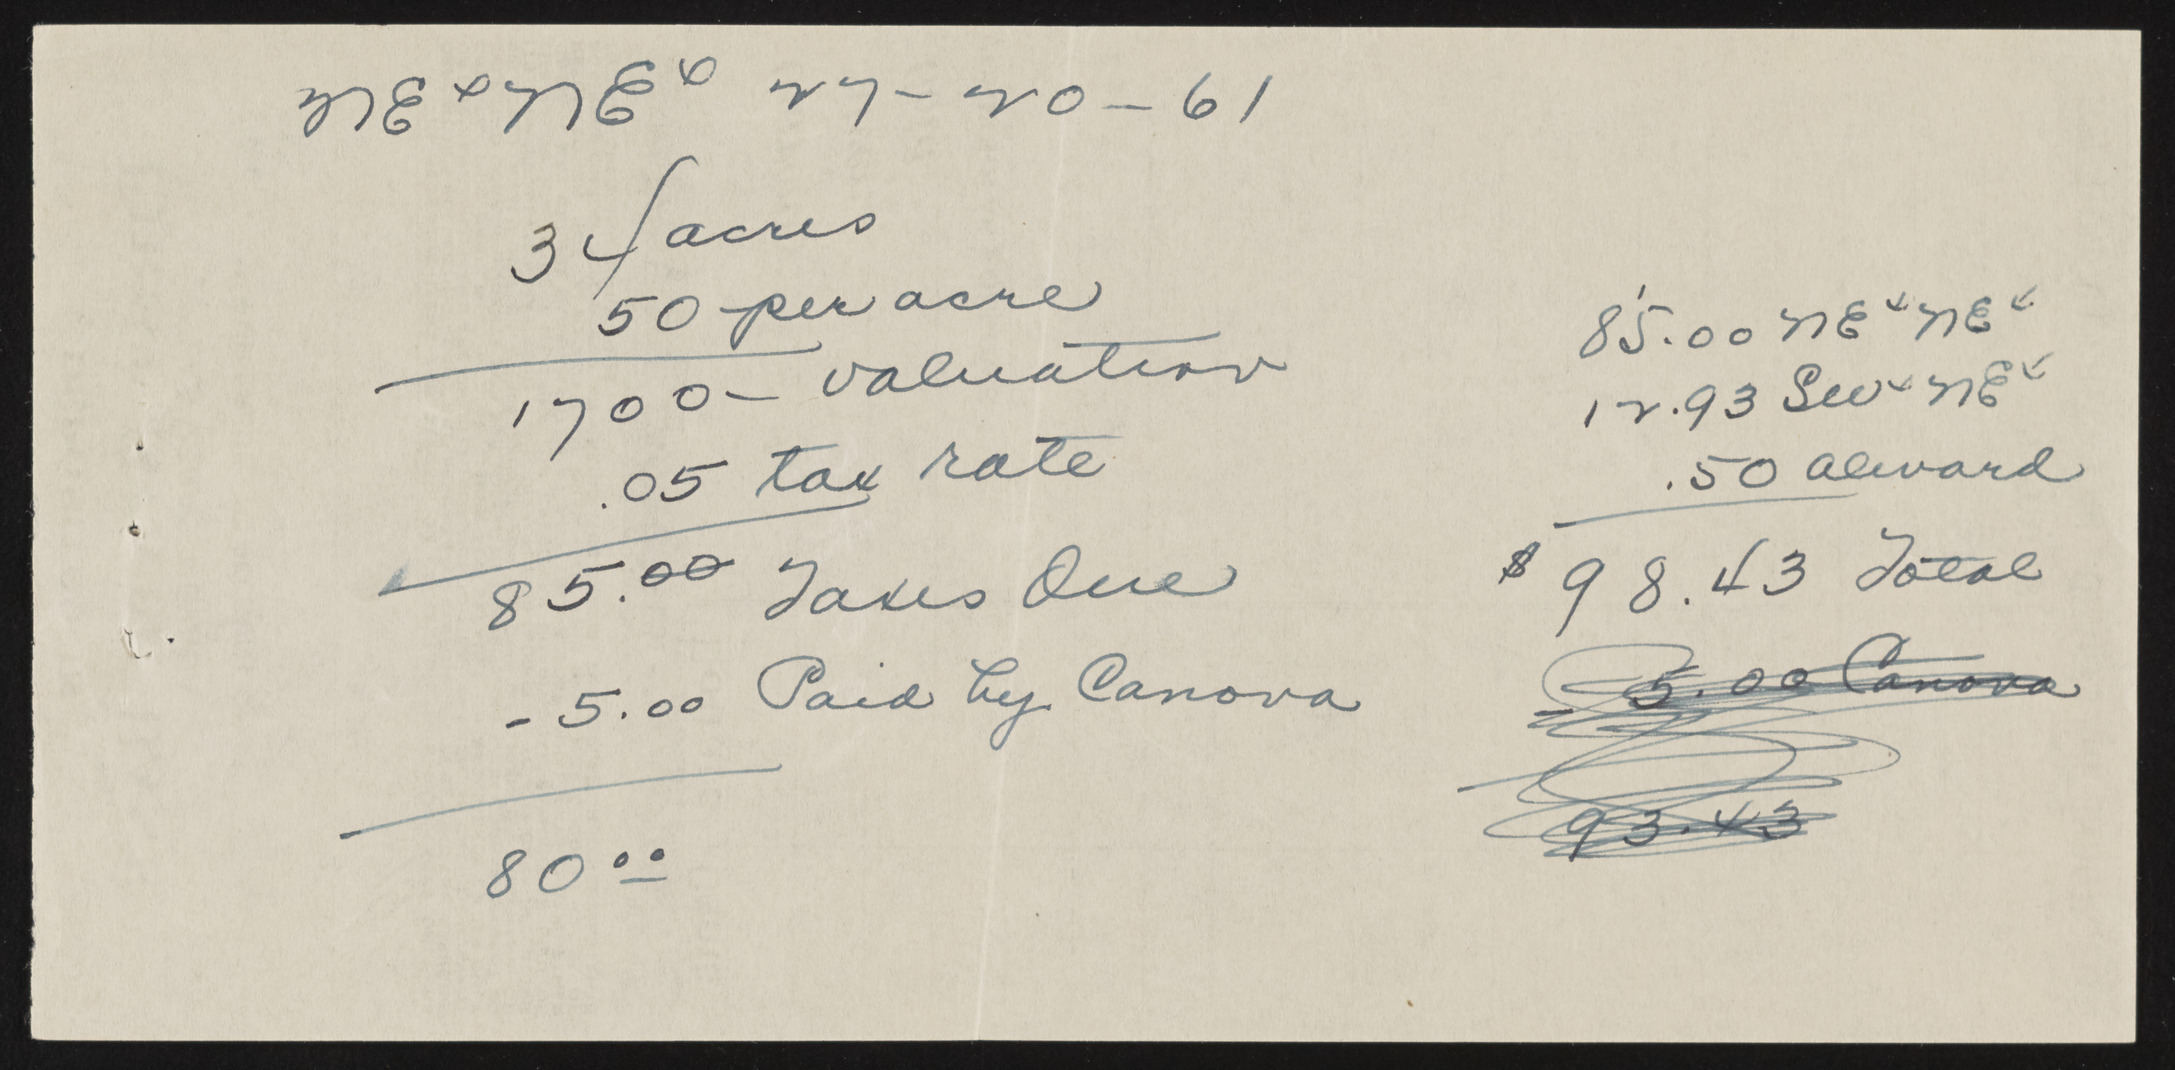 NE¼ NE¼ 27-20-19
34 acres
50 per acre
1700- valuation
.05 tax rate
85.00 Taxes Due
-5.00 Paid by Canova
80 00
85.00 NE¼ NE¼
12.93 SW¼ NE¼
.50 Alward
$ 98.43 Total
5.00 Canova
93.43